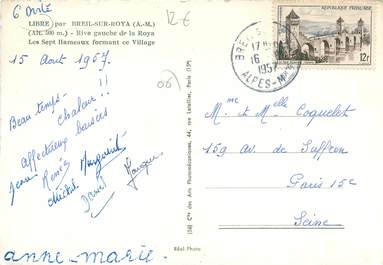 6 Dote
12€
LIBRE par BREIL-SUR-ROYA (A.-M.)
(Alt. 500 m.) - Rive gauche de la Roya
Les Sept Hameaux formant ce Village
15 Aout 1957.
(06)
Beau temps -
chaleur !!
Affectueux baisers
Jean Renée Marguerite
Michel
Daniel
(C) Cie des Arts Photomécaniques, 44, rue Letellier, Paris (15e)
BREIL-S
17 H
16
1957
ALPES-Mmes
REPUBLIQUE FRANÇAISE
12f
Mme et Melle Coquelet
159 av. de Suffren
Paris 15e
Seine
Réal-Photo
anne-marie